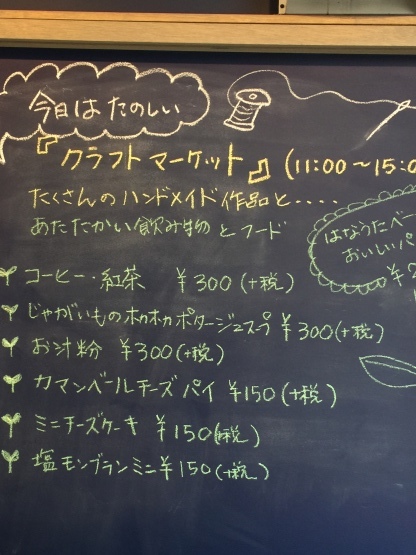 今日は たのしい
『クラフトマーケット』(11:00〜15:0
たくさんのハンドメイド作品と・・・・
あたたかい飲み物とフード
はなうたベー
おいしいパ
コーヒー・紅茶 ¥300 (+税)
じゃがいものホカホカポタージュスープ ¥300(+税)
お汁粉 ¥300(+税)
カマンベールチーズパイ ¥150(+税)
ミニチーズケーキ ¥150(+税)
塩モンブランミニ ¥150(+税)